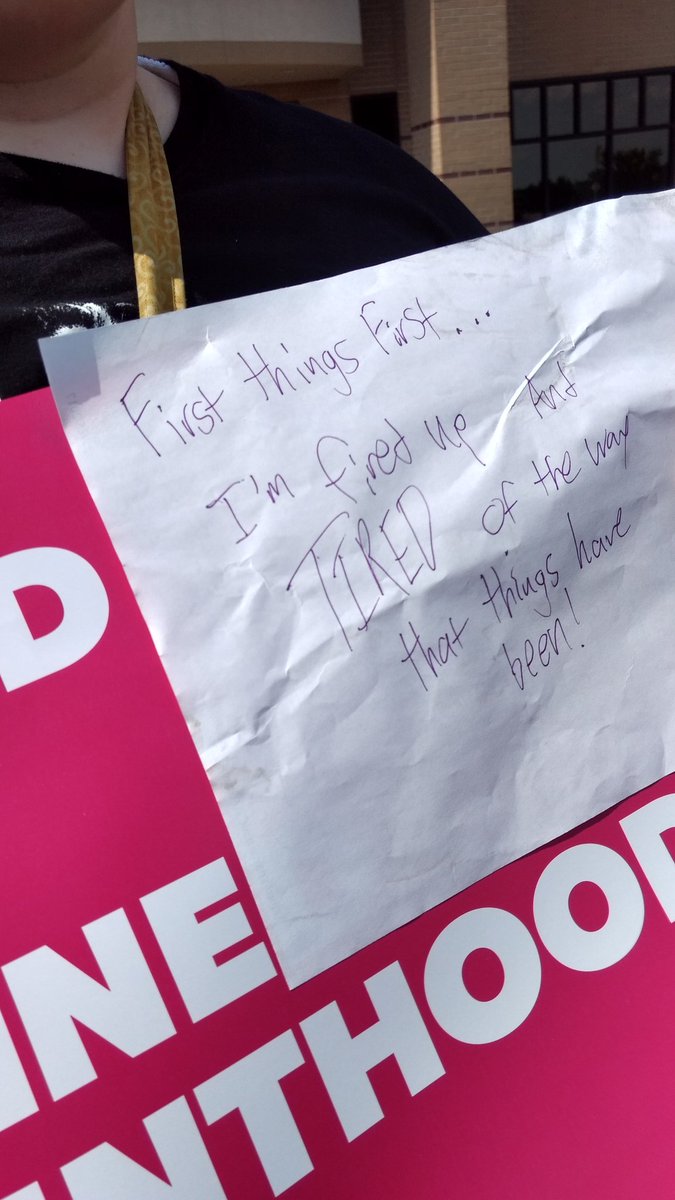 First things First...
I'm fired up And
TIRED of the way
that things have
been!
D
INE
NTHOOD